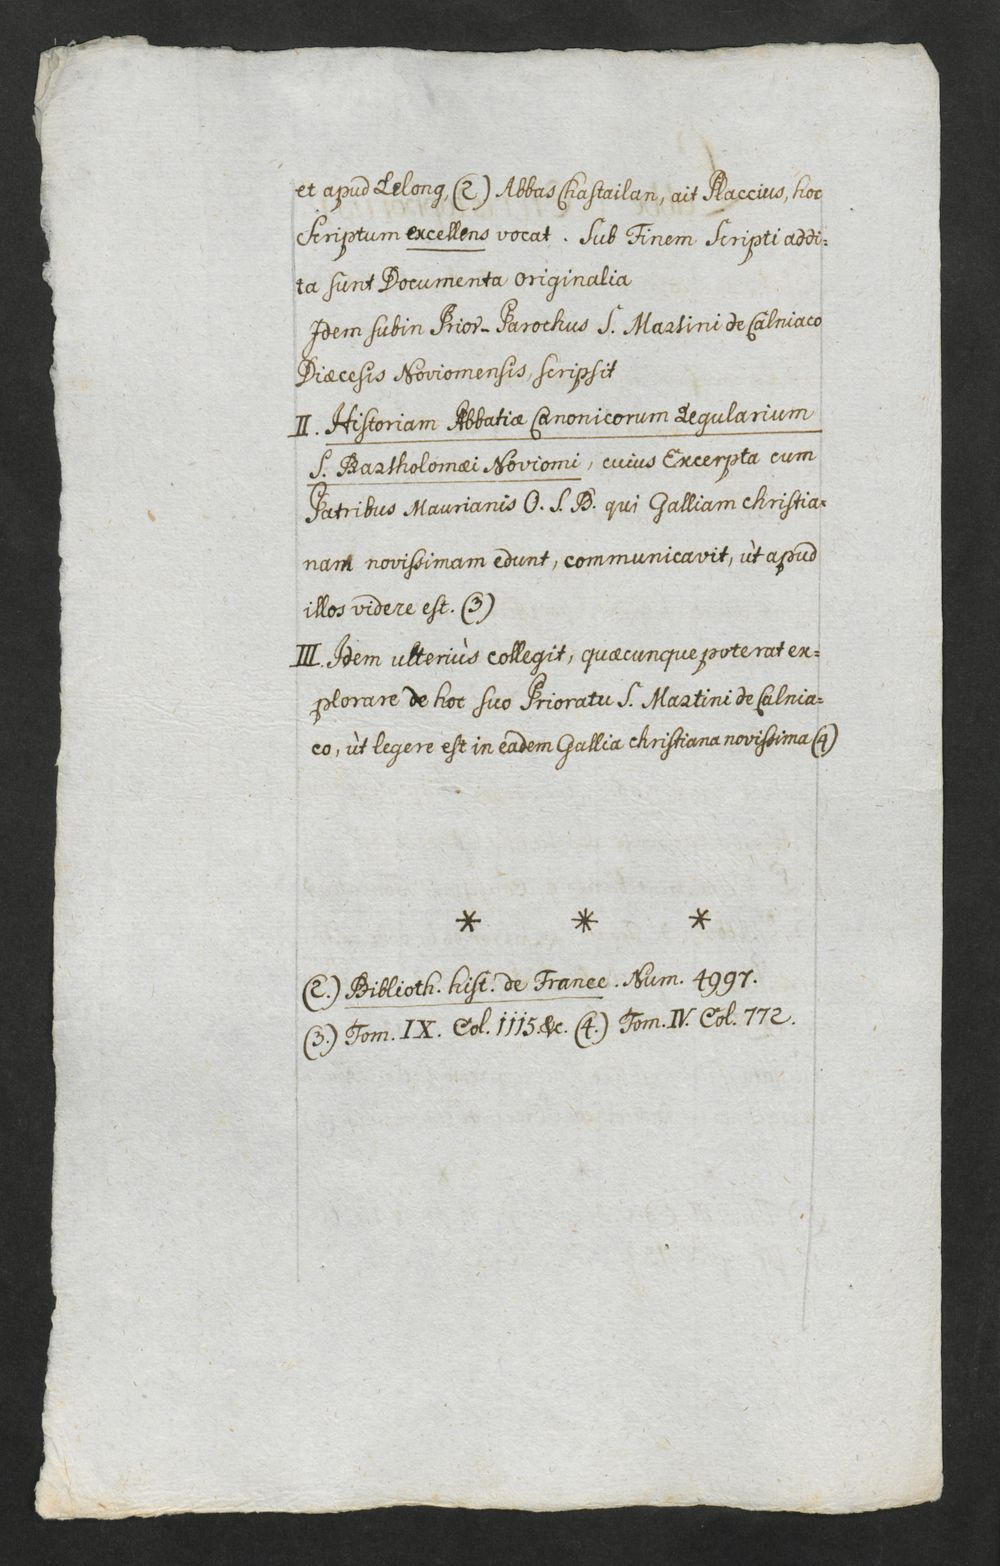 et apud Lelong, (2) Abbas Chastailan, ait Placcius, hoc
Scriptum excellens vocat. Sub Finem Scripti addi=
ta sunt Documenta originalia
Idem subin Prior-Parochus S. Martini de Calniaco
Diæcesis Noviomensis, scripsit
II. Historiam Abbatiæ Canonicorum Regularium
S. Bartholomæi Noviomi, cuius Excerpta cum
Patribus Maurianis O. S. B. qui Galliam christia=
nam novissimam edunt, communicavit, ùt apud
illos videre est. (3)
III. Idem ulteriùs collegit, quæcunque poterat ex=
plorare de hoc suo Prioratu S. Martini de Calnia=
co, ùt legere est in eadem Gallia christiana novissima (4)
* * *
(2.) Biblioth. hist. de France. Num. 4997.
(3.) Tom. IX. Col. 1115. &c. (4.) Tom. IV. Col. 772.